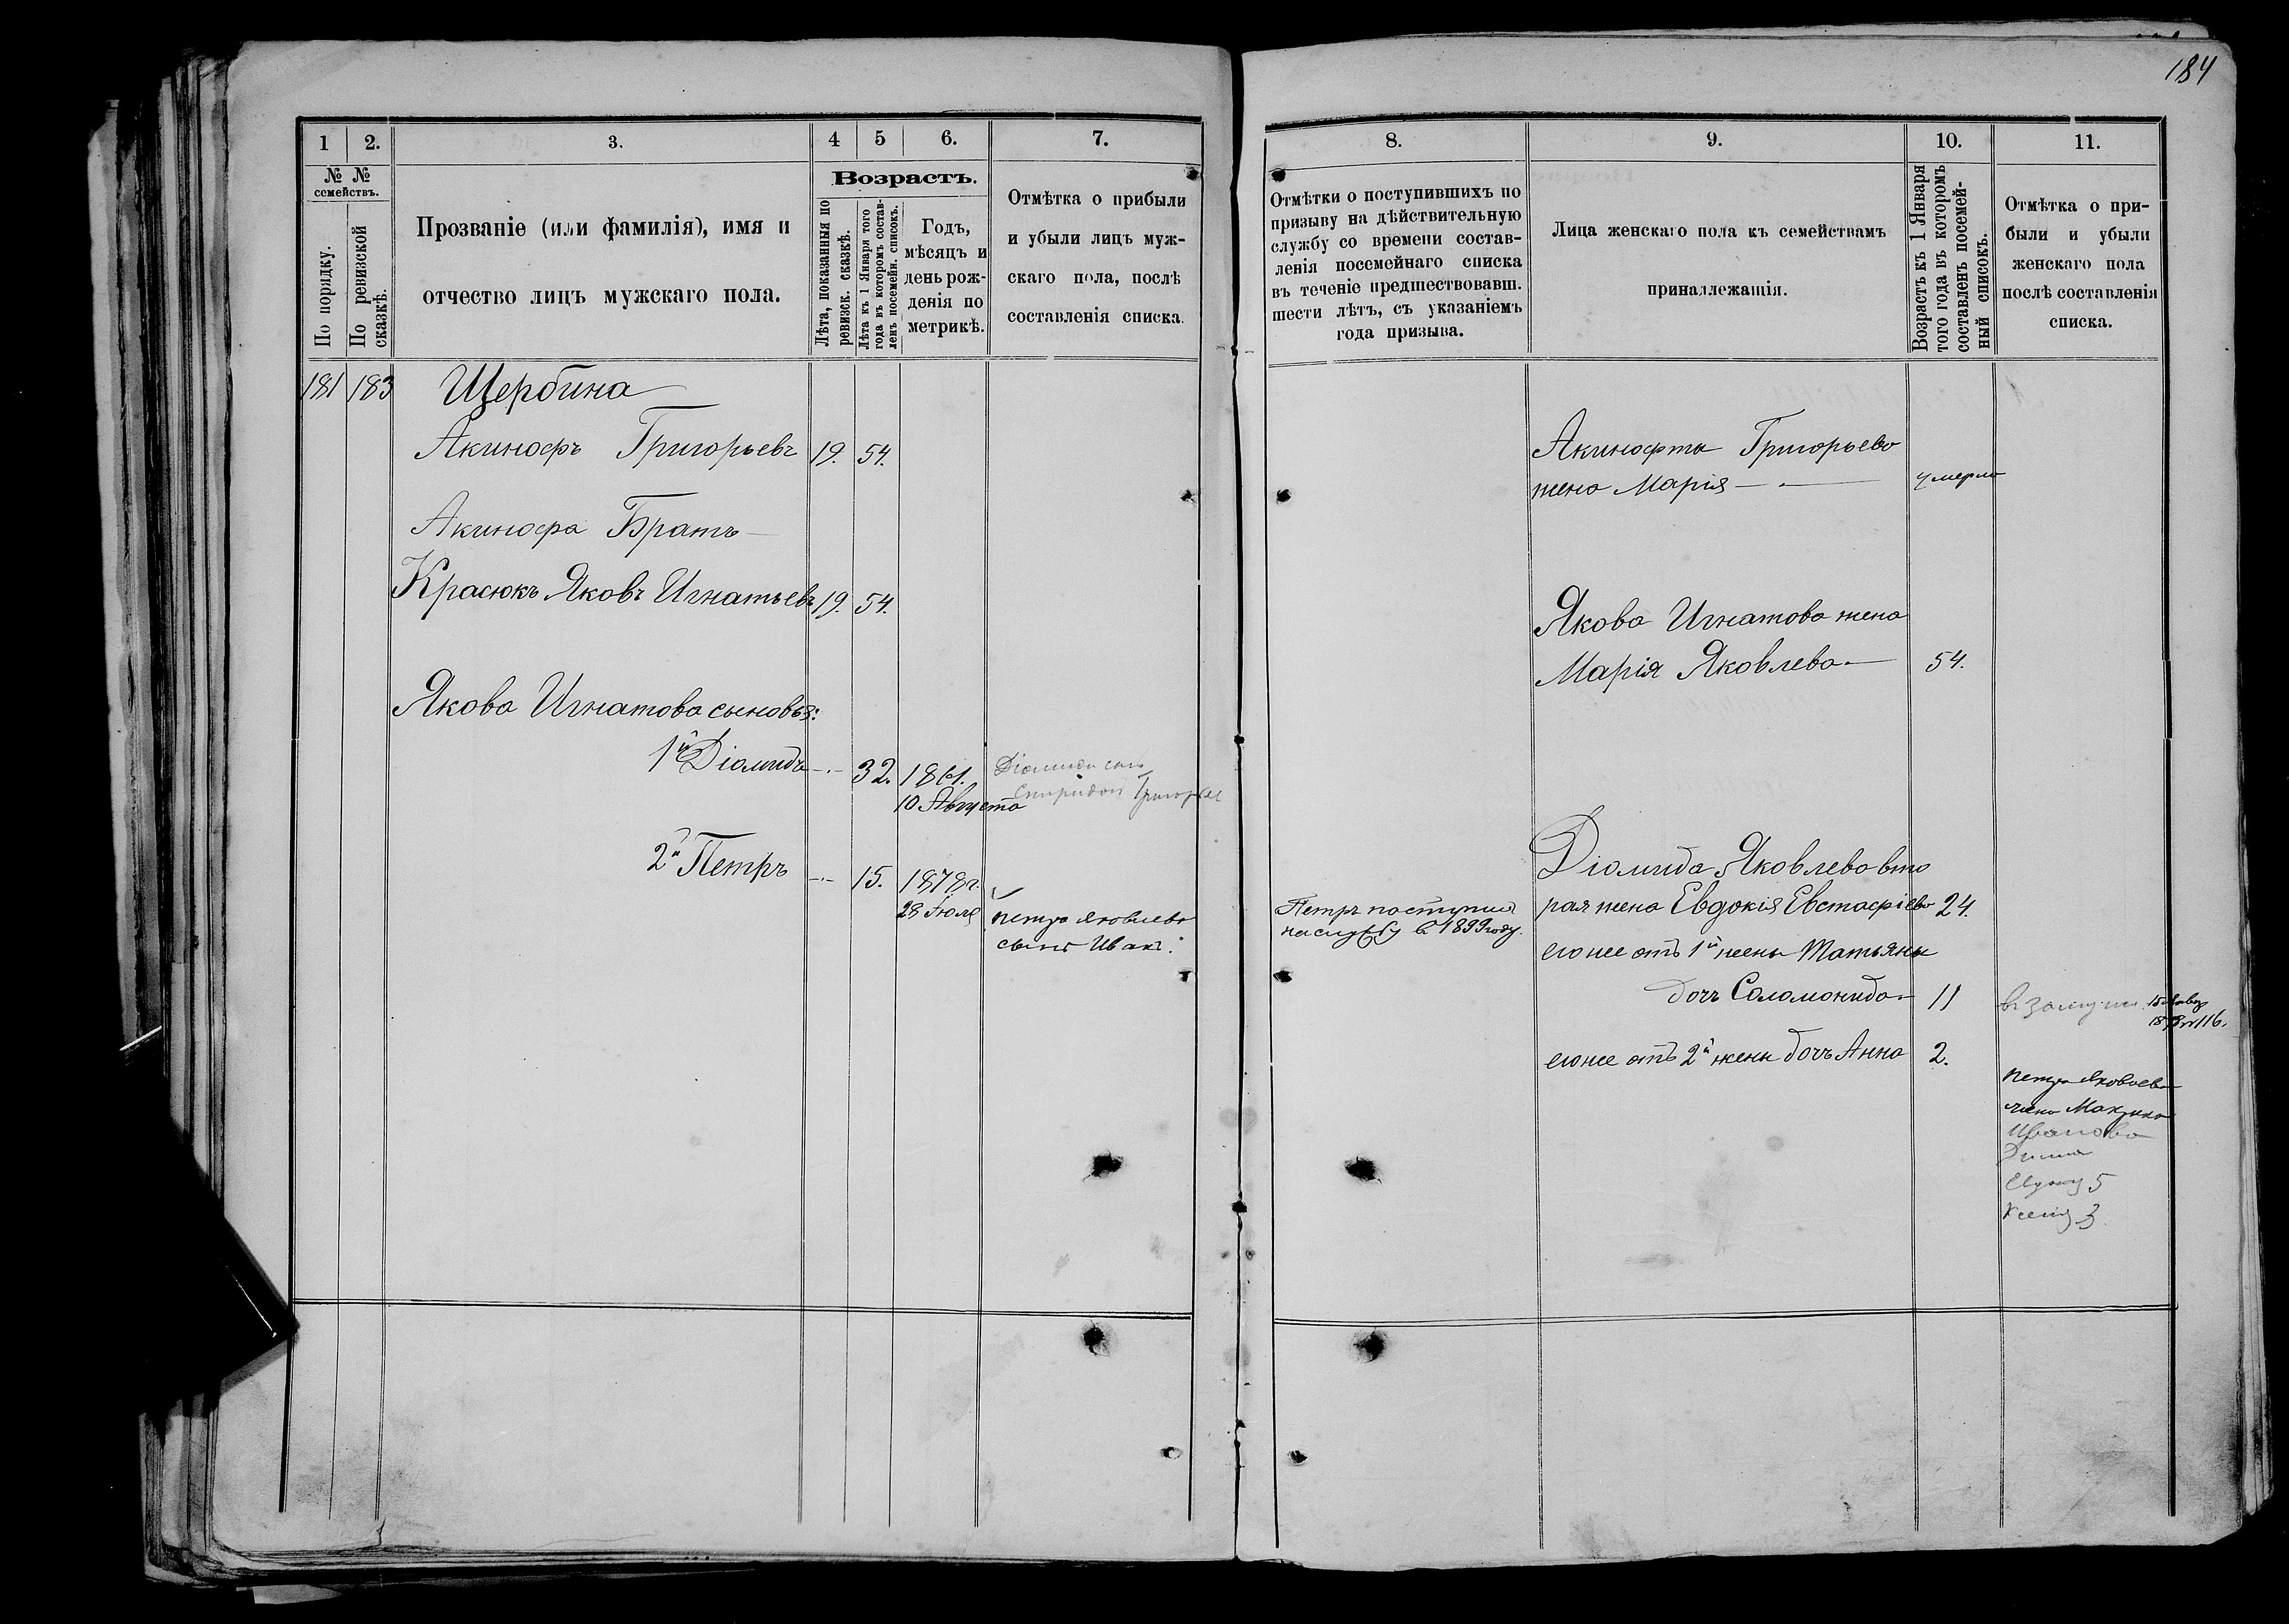 184
1 2. 3. 4 5 6. 7.
№ № семействъ.
По порядку.
По ревизской сказкѣ.
Прозваніе (или фамилія), имя и
отчество лицъ мужскаго пола.
Возрастъ.
Лѣта, показанныя по
ревизск. сказкѣ.
Лѣта къ 1 Января того
года въ которомъ состав-
ленъ посемейн. списокъ.
Годъ,
мѣсяцъ и
день рож-
денія по
метрикѣ.
Отмѣтка о прибыли
и убыли лицъ муж-
скаго пола, послѣ
составленія списка.
181 183 Щербина
Акинофъ Григорьевъ 19. 54.
Акинофа Братъ
Красюкъ Яковъ Игнатьевъ 19. 54.
Якова Игнатова сыновья:
1й Діомидъ 32. 1861.
10 Августа
Діомида сынъ
Спиридон Григорьев
2й Петръ 15. 1878г.
29 Іюля
Петра Яковлева
сынъ Иван.
8. 9. 10. 11.
Отмѣтки о поступившихъ по
призыву на дѣйствительную
службу со времени состав-
ленія посемейнаго списка
въ теченіе предшествовавш.
шести лѣтъ, съ указаніемъ
года призыва.
Лица женскаго пола къ семействамъ
принадлежащія.
Возрастъ къ 1 Января
того года въ которомъ
составленъ посемей-
ный списокъ.
Отмѣтка о при-
были и убыли
женскаго пола
послѣ составленія
списка.
Акинофта Григорьева
жена Марія умерла
Якова Игнатова жена
Марія Яковлева 54.
Діомида Яковлева вто
рая жена Евдокія Евстафіева 24.
Петръ поступил
на службу в 1899 году.
его же отъ 1й жены Татьяны
дочь Соломонида 11
въ замуж.
его же отъ 2й жены дочь Анна 2.
Петра Яковлева
жена
Иванова
5
Ксенія 3